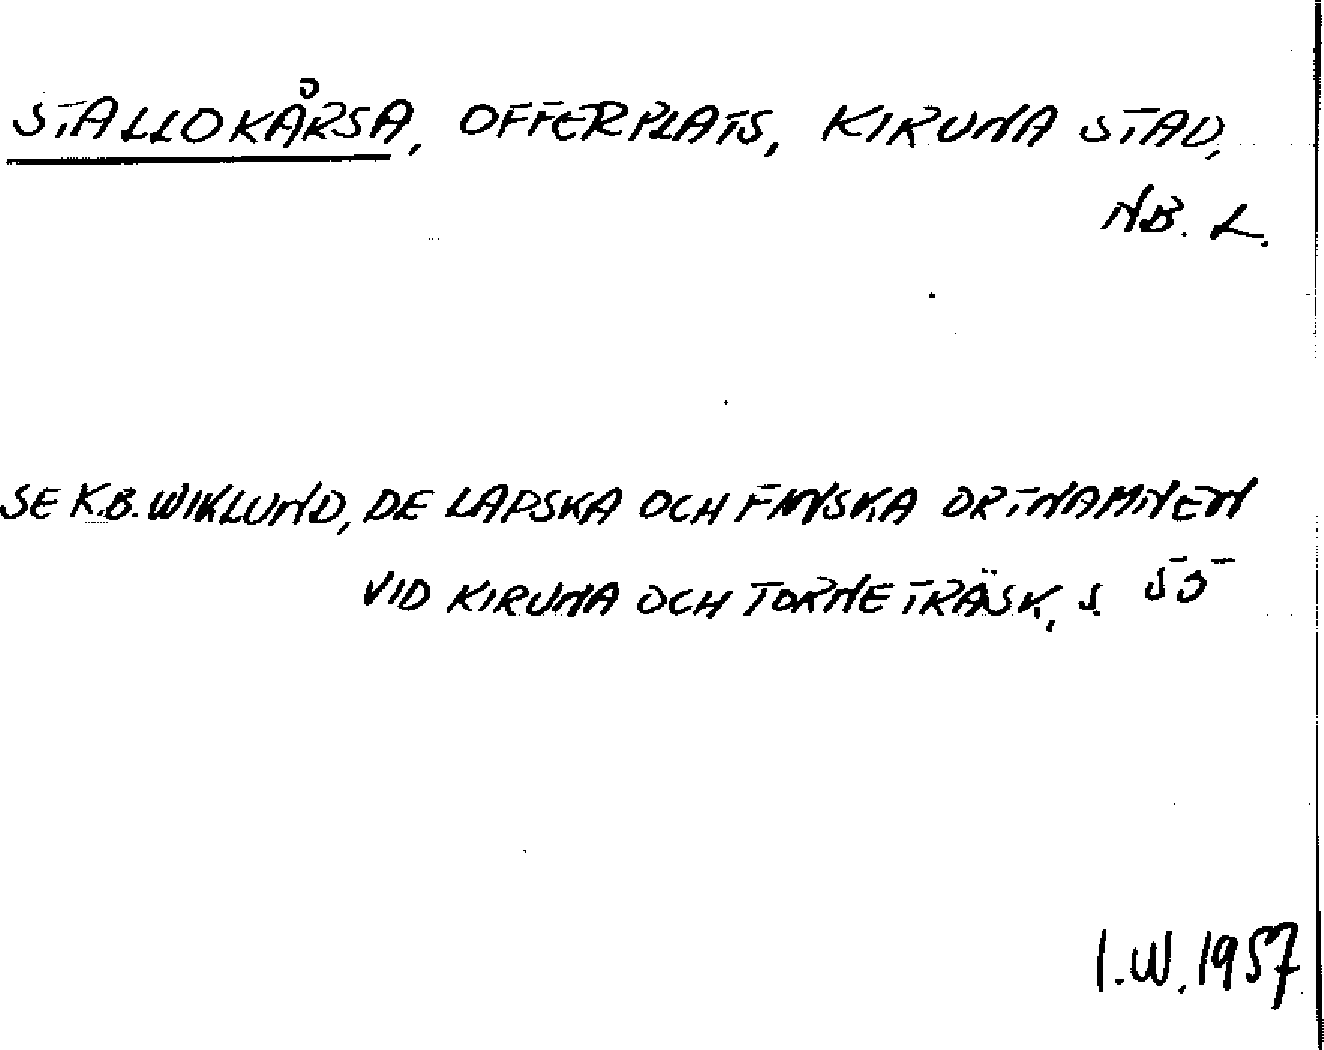 STALLOKÅRSA, OFFERPLATS, KIRUNA STAD,
NB. L.
SE K.B. WIKLUND, DE LAPSKA OCH FINSKA ORTNAMNEN
VID KIRUNA OCH TORNETRÄSK, S. 55
I.W. 1957